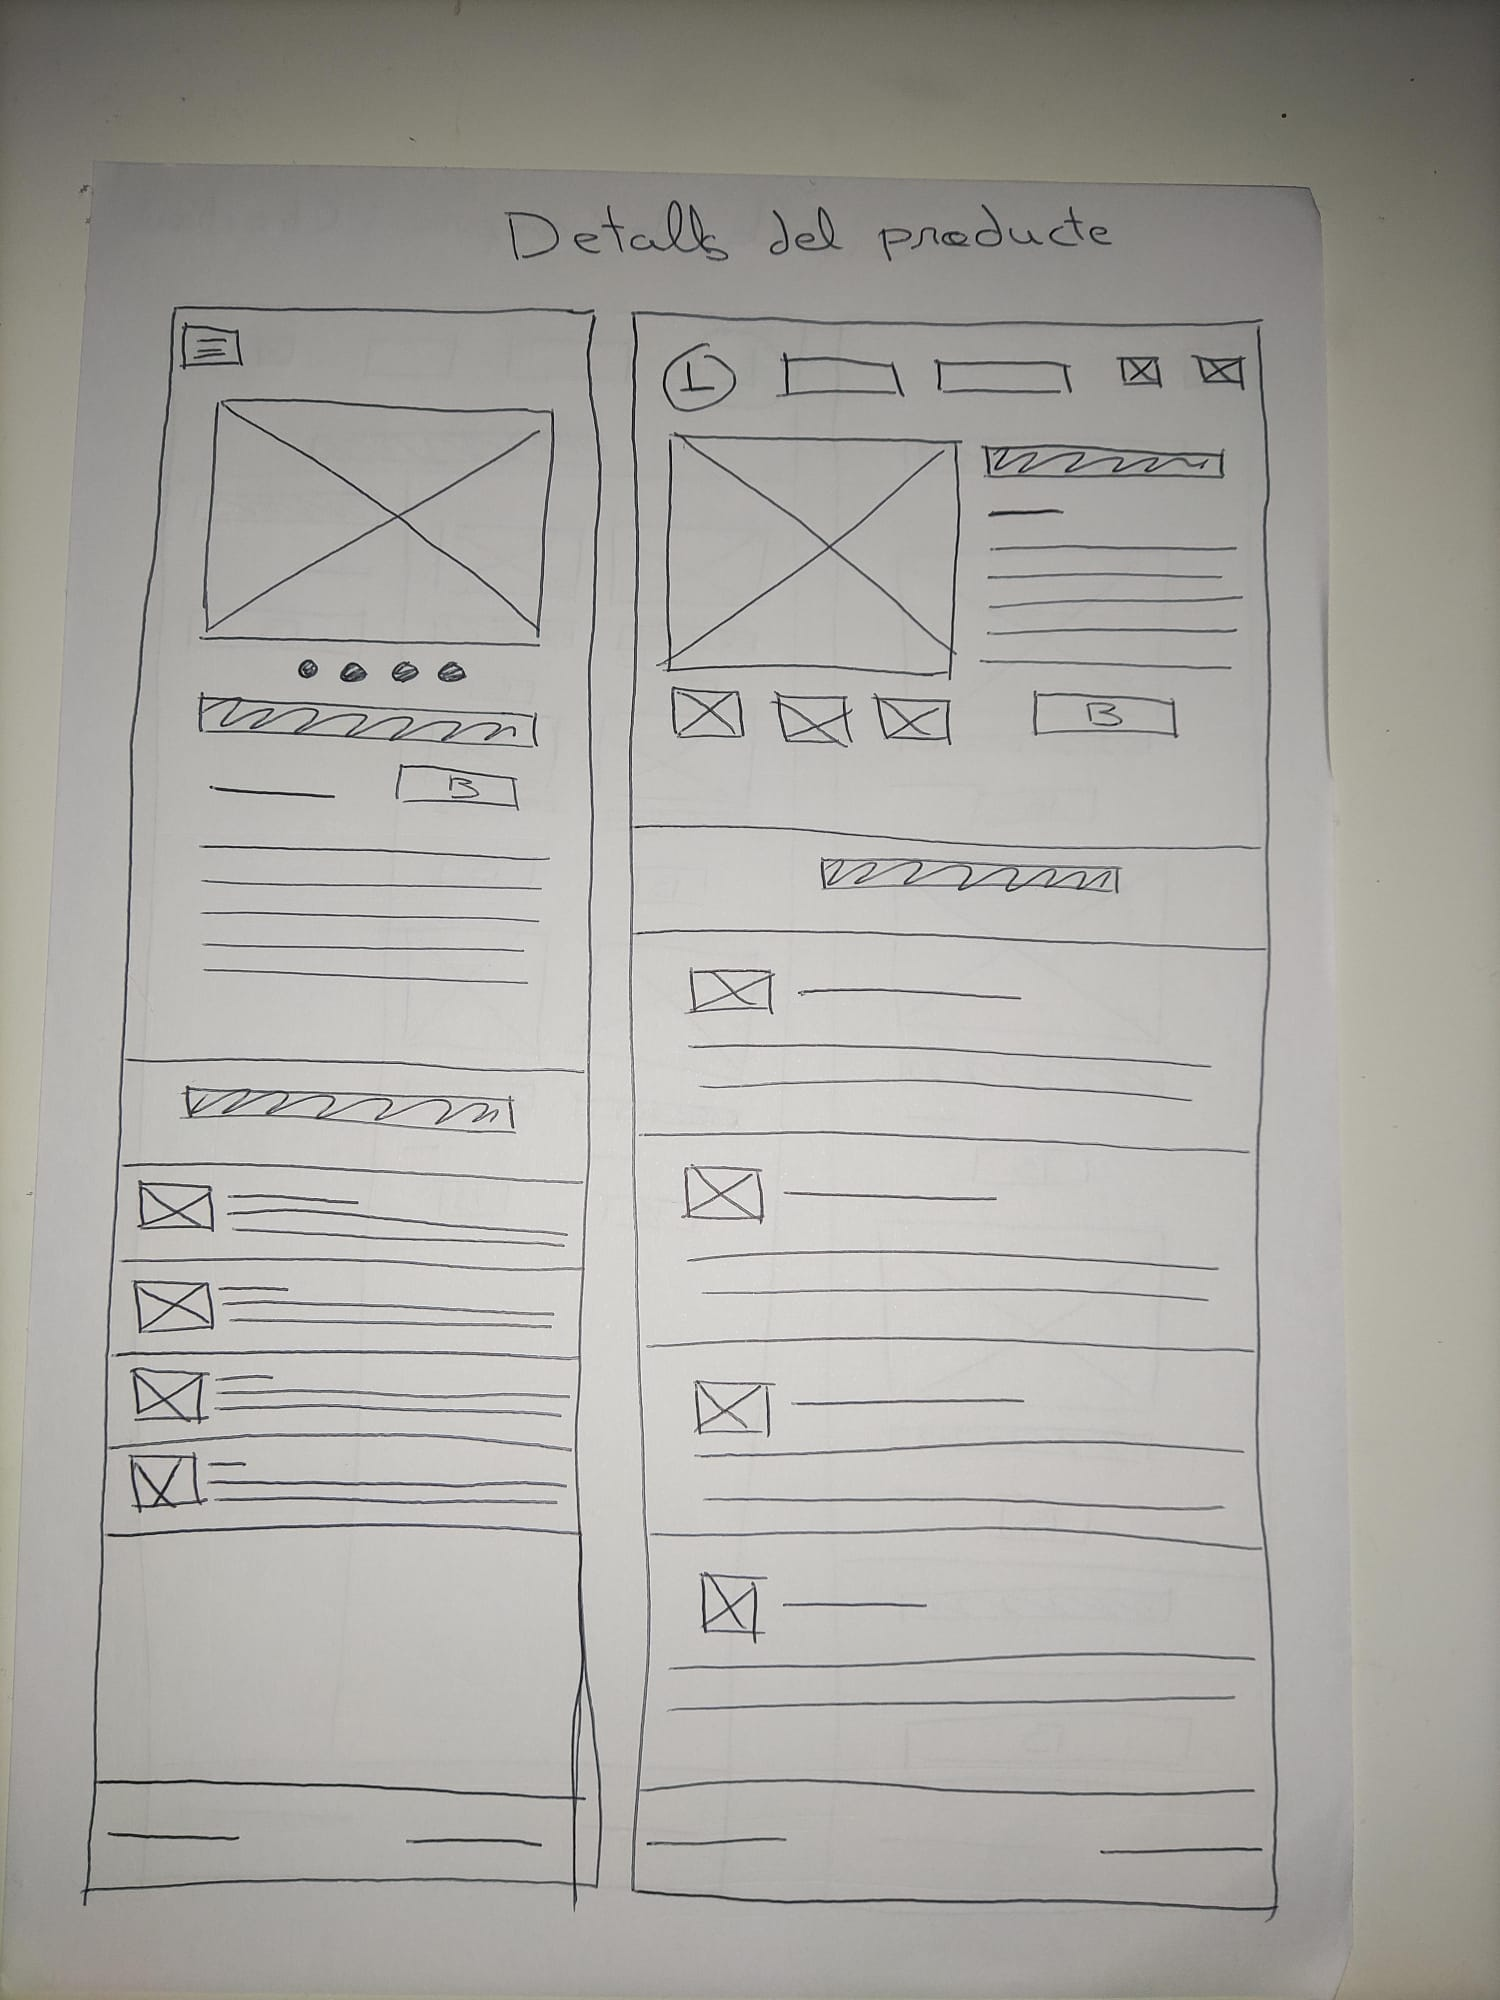 Detalls del producte
L
B
B